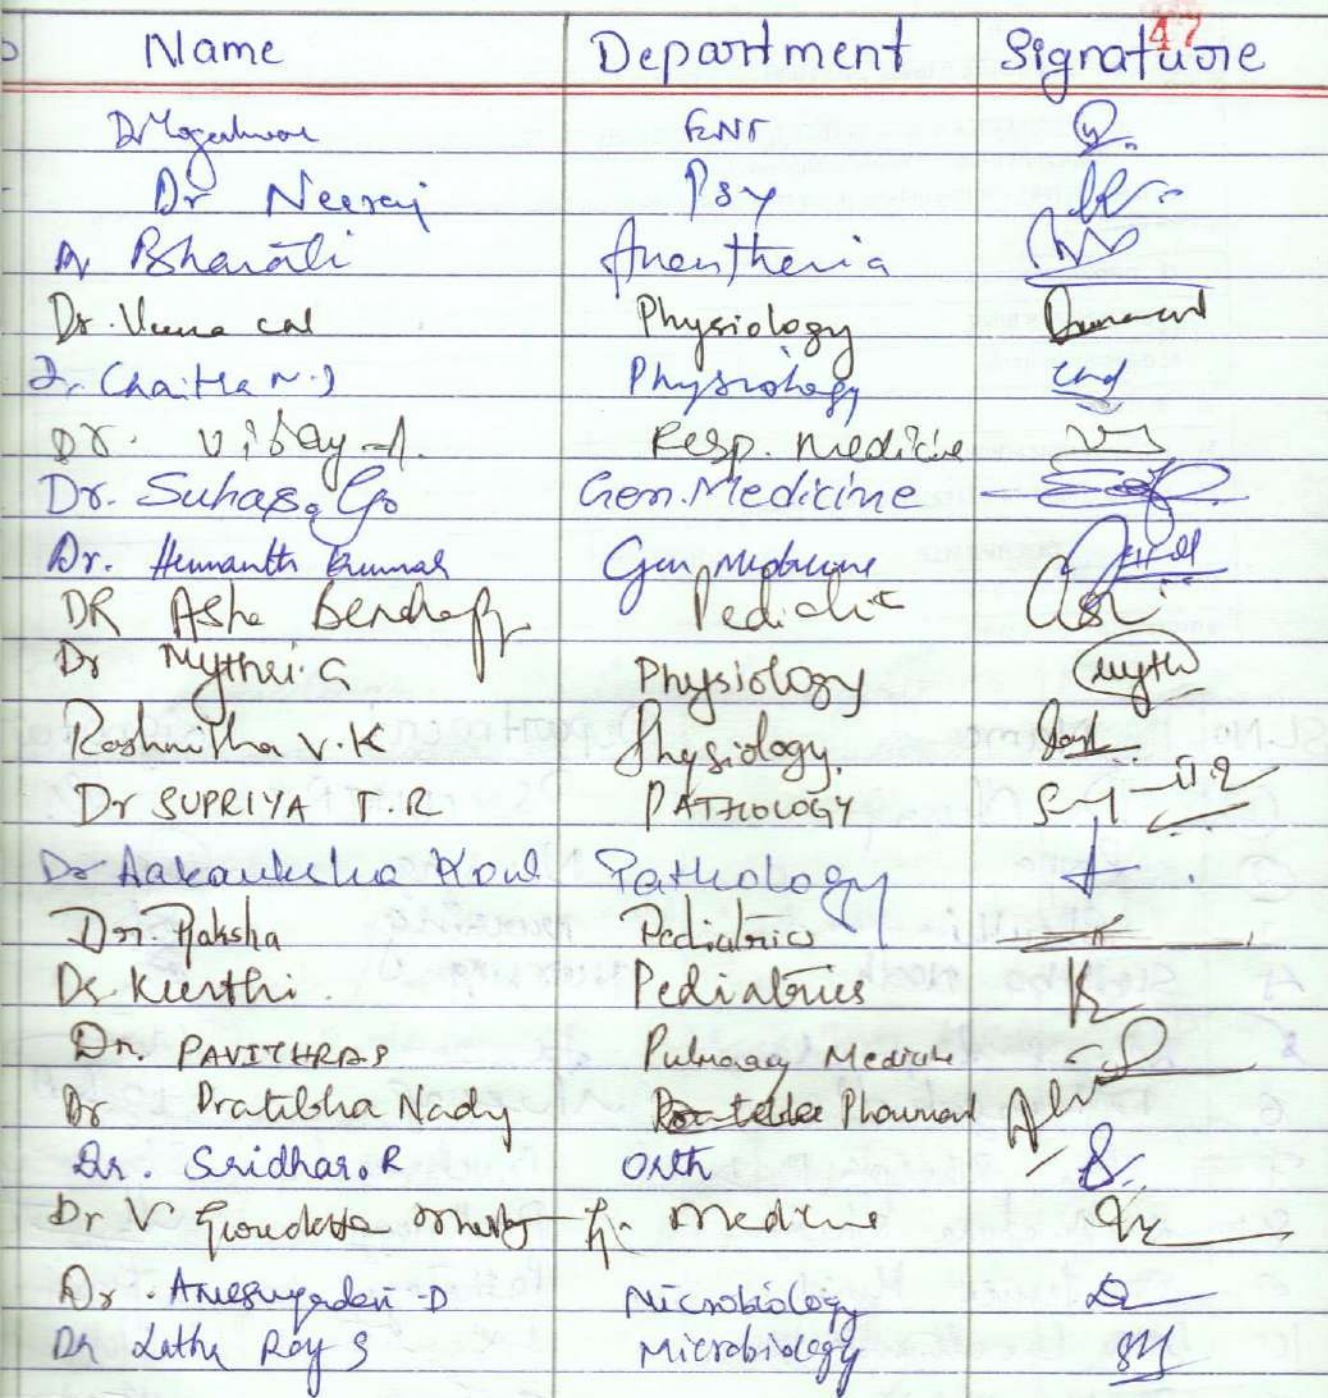 47
Name Department Signature
Dr Yogeshwar ENT
Dr Neeraj Psy
Dr Bharati Anesthesia
Dr. Veena cal Physiology
Dr. Chaitra N.J Physiology
Dr. Vijay A. Resp. Medicine
Dr. Suhas. G Gen. Medicine
Dr. Hemanth Kumar Gen Medicine
DR Asha Benakappa Pediatric
Dr Mythri. G Physiology
Rashmitha V.K Physiology.
Dr SUPRIYA T.R PATHOLOGY
Dr Aakanksha Koul Pathology
Dr. Raksha Pediatrics
Dr. Keerthi. Pediatrics
Dr. PAVITHRA S Pulmonary Medicine
Dr Pratibha Nady
Dr. Sridhar. R Orth
Dr V Medicine
Dr. Anasuyadevi - D Microbiology
Dr Latha Roy S Microbiology